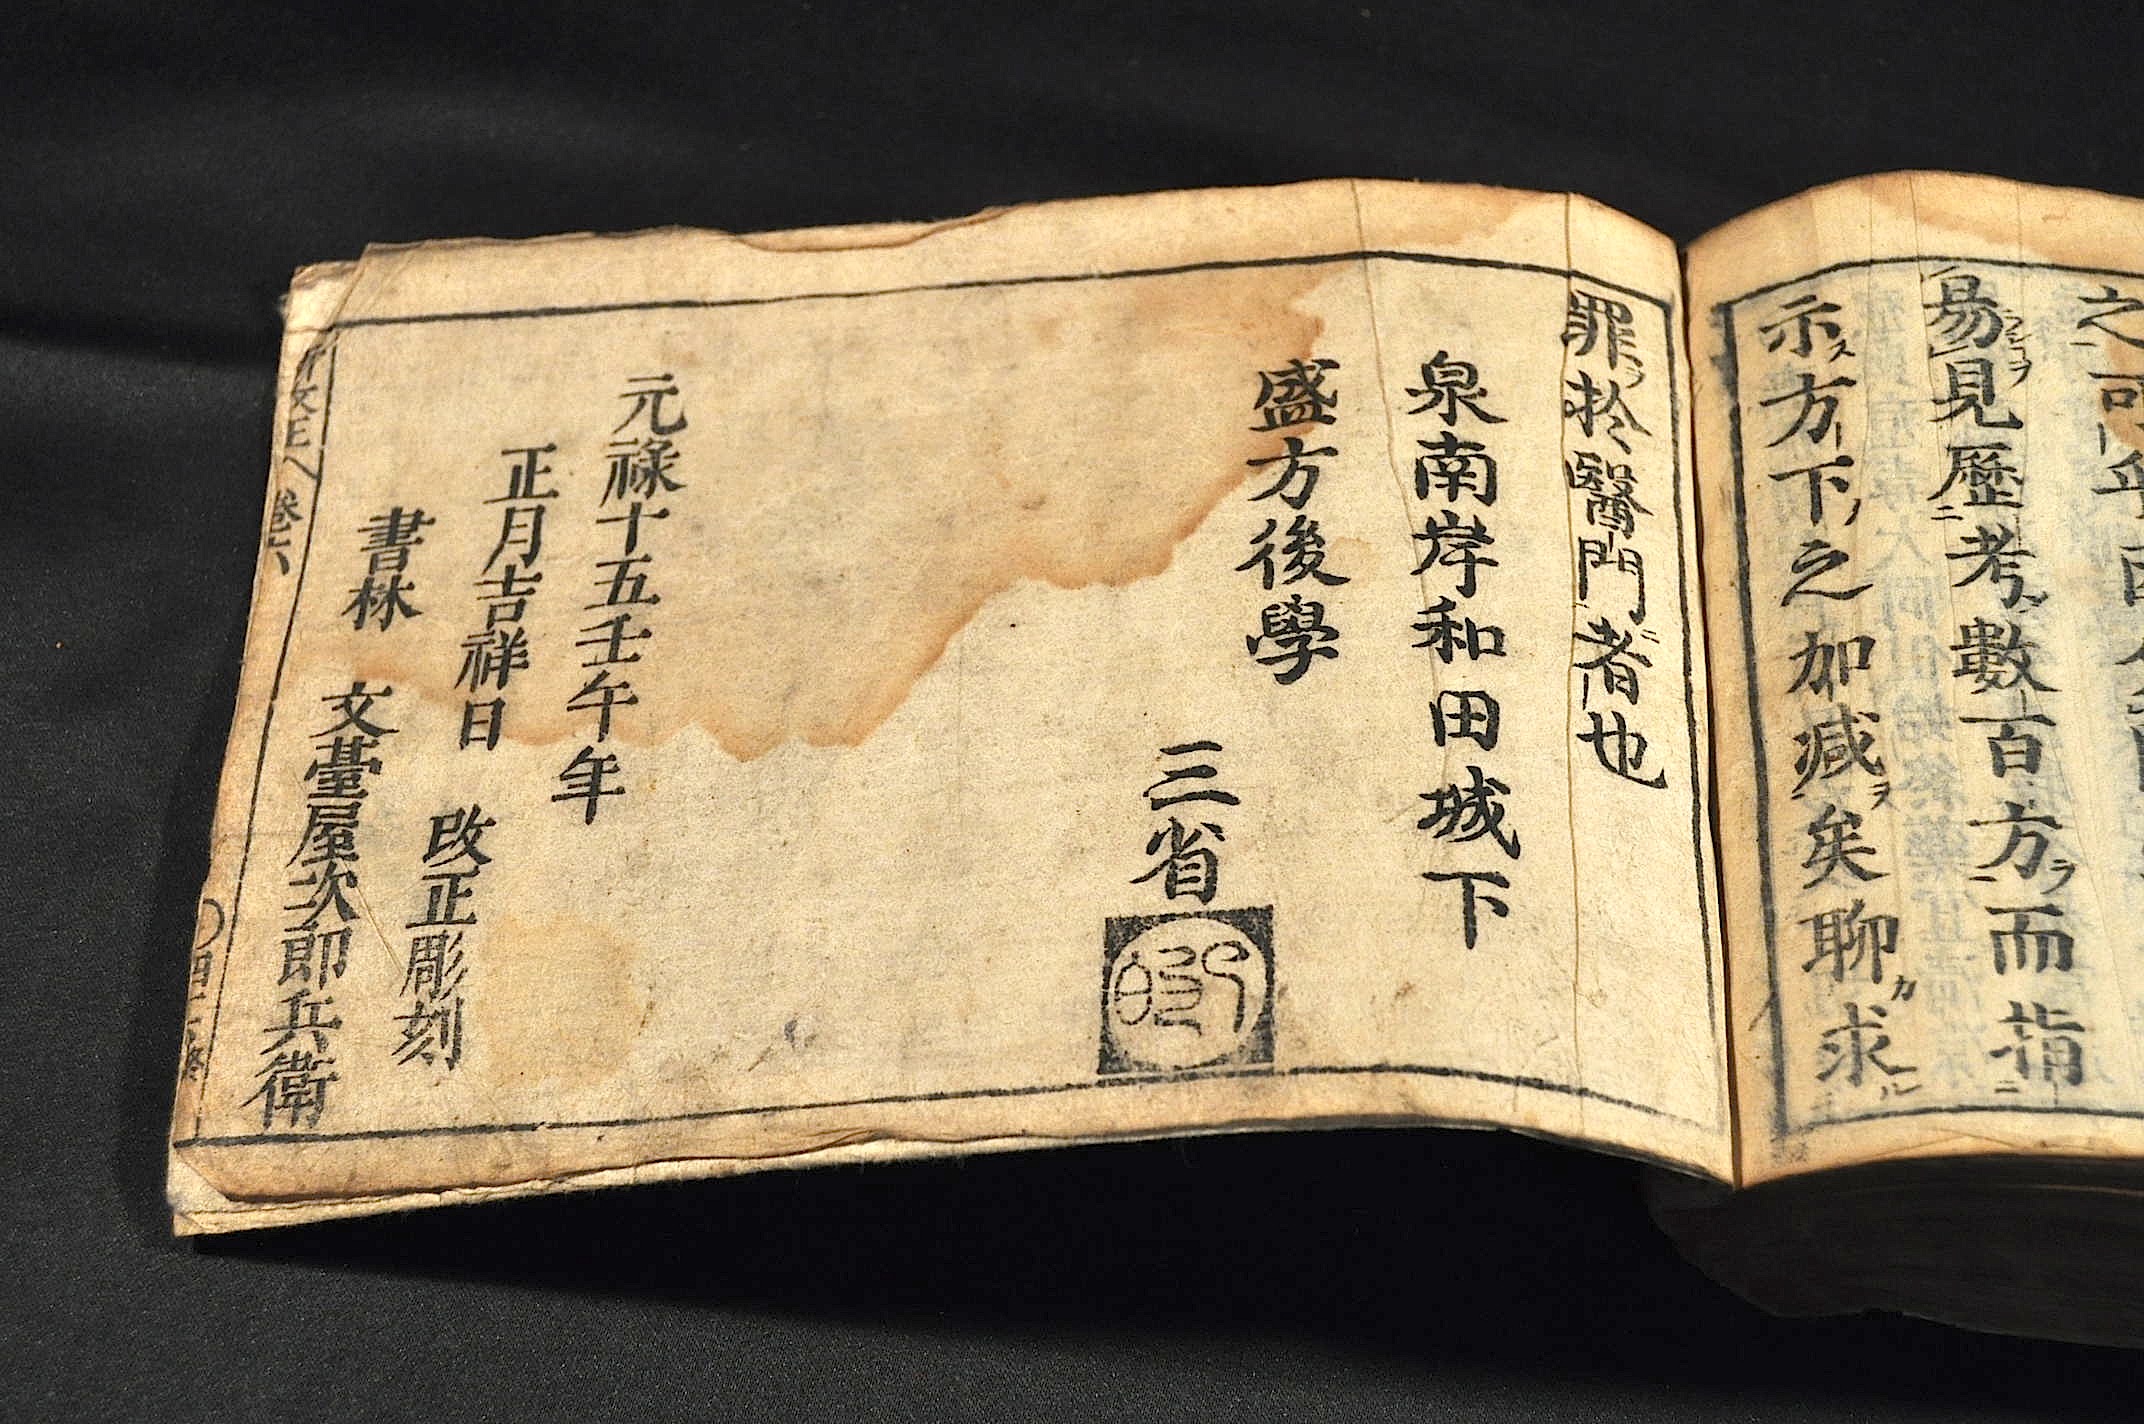 易見歴考數百方而指
示方下之加減矣聊求
罪於醫門者也
泉南岸和田城下
盛方後學
三省
元祿十五壬午年
正月吉祥日 改正彫刻
書林 文臺屋次郎兵衛